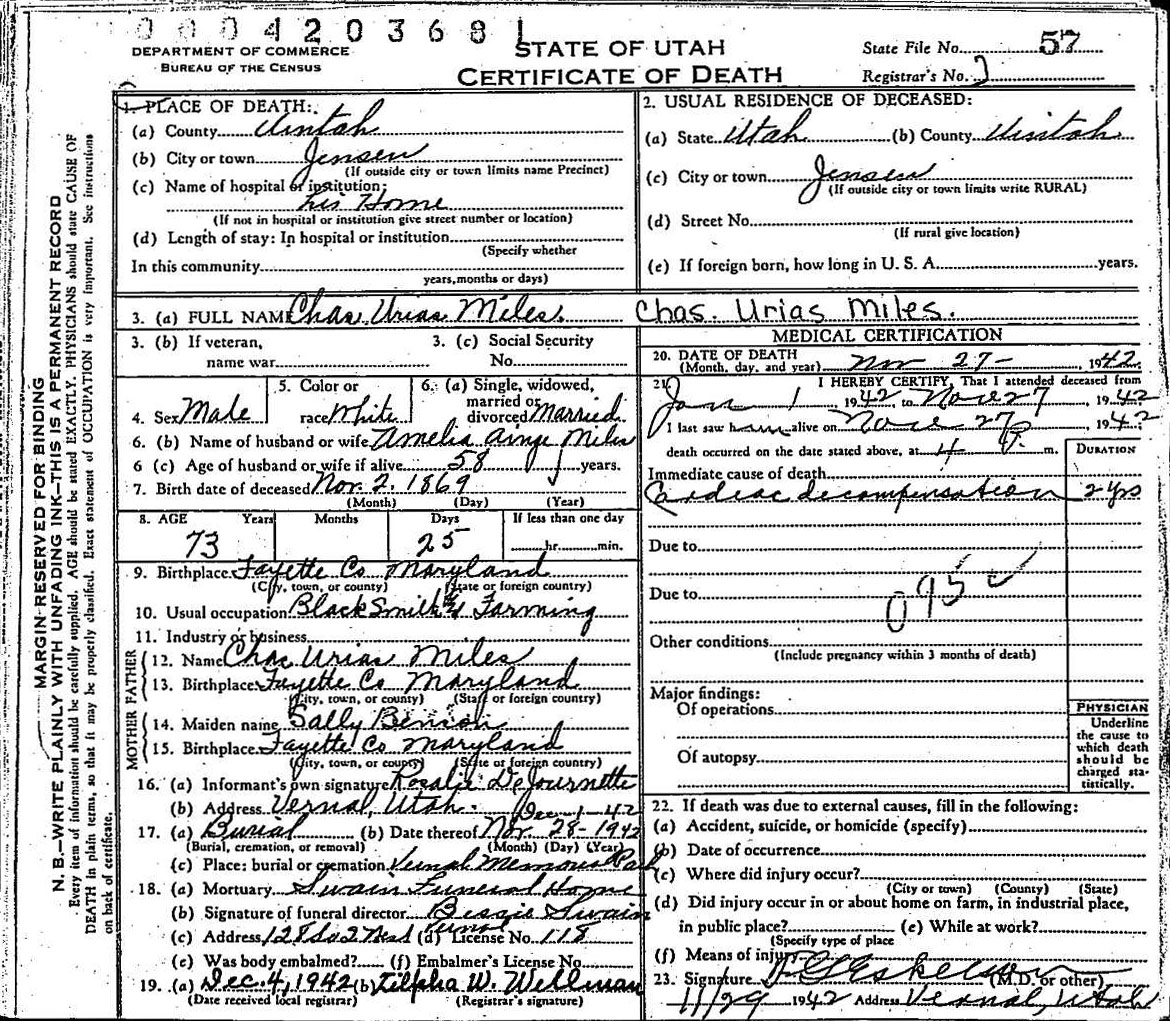 0 0 0 4 2 0 3 6 8 1
DEPARTMENT OF COMMERCE
BUREAU OF THE CENSUS
STATE OF UTAH
CERTIFICATE OF DEATH
State File No. 57
Registrar's No.
MARGIN-RESERVED FOR BINDING
N. B.—WRITE PLAINLY WITH UNFADING INK—THIS IS A PERMANENT RECORD
Every item of information should be carefully supplied. AGE should be stated EXACTLY. PHYSICIANS should state CAUSE OF
DEATH In plain terms, so that it may be properly classified. Exact statement of OCCUPATION is very important. See instructions
on back of certificate.
1. PLACE OF DEATH:
(a) County Uintah
(b) City or town Jensen
(If outside city or town limits name Precinct)
(c) Name of hospital or institution:
his Home
(If not in hospital or institution give street number or location)
(d) Length of stay: In hospital or institution
(Specify whether
In this community
years, months or days)
2. USUAL RESIDENCE OF DECEASED:
(a) State Utah (b) County Uintah
(c) City or town Jensen
(If outside city or town limits write RURAL)
(d) Street No.
(If rural give location)
(e) If foreign born, how long in U. S. A. years.
3. (a) FULL NAME Chas Urias Miles. Chas. Urias Miles.
3. (b) If veteran,
name war
3. (c) Social Security
No.
4. Sex Male
5. Color or
race White
6. (a) Single, widowed,
married or
divorced Married
6. (b) Name of husband or wife Amelia Ainge Miles
6 (c) Age of husband or wife if alive 58 years.
7. Birth date of deceased Nov. 2. 1869
(Month) (Day) (Year)
8. AGE Years Months Days If less than one day
73 25 hr. min.
9. Birthplace Fayette Co Maryland
(City, town, or county) (State or foreign country)
10. Usual occupation BlackSmith & Farming
11. Industry or business
FATHER
12. Name Chas Urias Miles
13. Birthplace Fayette Co Maryland
(City, town, or county) (State or foreign country)
MOTHER
14. Maiden name Sally Benson
15. Birthplace Fayette Co Maryland
(City, town, or county) (State or foreign country)
16. (a) Informant's own signature Rosalie DeJournette
(b) Address Vernal, Utah. Dec-1-42
17. (a) Burial (b) Date thereof Nov. 28-1942
(Burial, cremation, or removal) (Month) (Day) (Year)
(c) Place: burial or cremation Vernal Memorial Park
18. (a) Mortuary Swain Funeral Home
(b) Signature of funeral director Bessie Swain
Vernal
(c) Address 128 So 2 West (d) License No. 118
(e) Was body embalmed? (f) Embalmer's License No.
19. (a) Dec. 4, 1942 (b) Zilpha W. Wellman
(Date received local registrar) (Registrar's signature)
MEDICAL CERTIFICATION
20. DATE OF DEATH
(Month, day, and year) Nov 27- 1942
21. I HEREBY CERTIFY, That I attended deceased from
Jan 1, 1942 to Nov 27, 1942
I last saw him alive on Nov 27, 1942
death occurred on the date stated above, at 4 P. m.
DURATION
Immediate cause of death
Cardiac decompensation 2 yrs
Due to
Due to
095 ✓
Other conditions
(Include pregnancy within 3 months of death)
Major findings:
Of operations
Of autopsy
PHYSICIAN
Underline
the cause to
which death
should be
charged sta-
tistically.
22. If death was due to external causes, fill in the following:
(a) Accident, suicide, or homicide (specify)
(b) Date of occurrence
(c) Where did injury occur?
(City or town) (County) (State)
(d) Did injury occur in or about home on farm, in industrial place,
in public place? (e) While at work?
(Specify type of place
(f) Means of injury
23. Signature (M.D. or other)
11/29 1942 Address Vernal, Utah